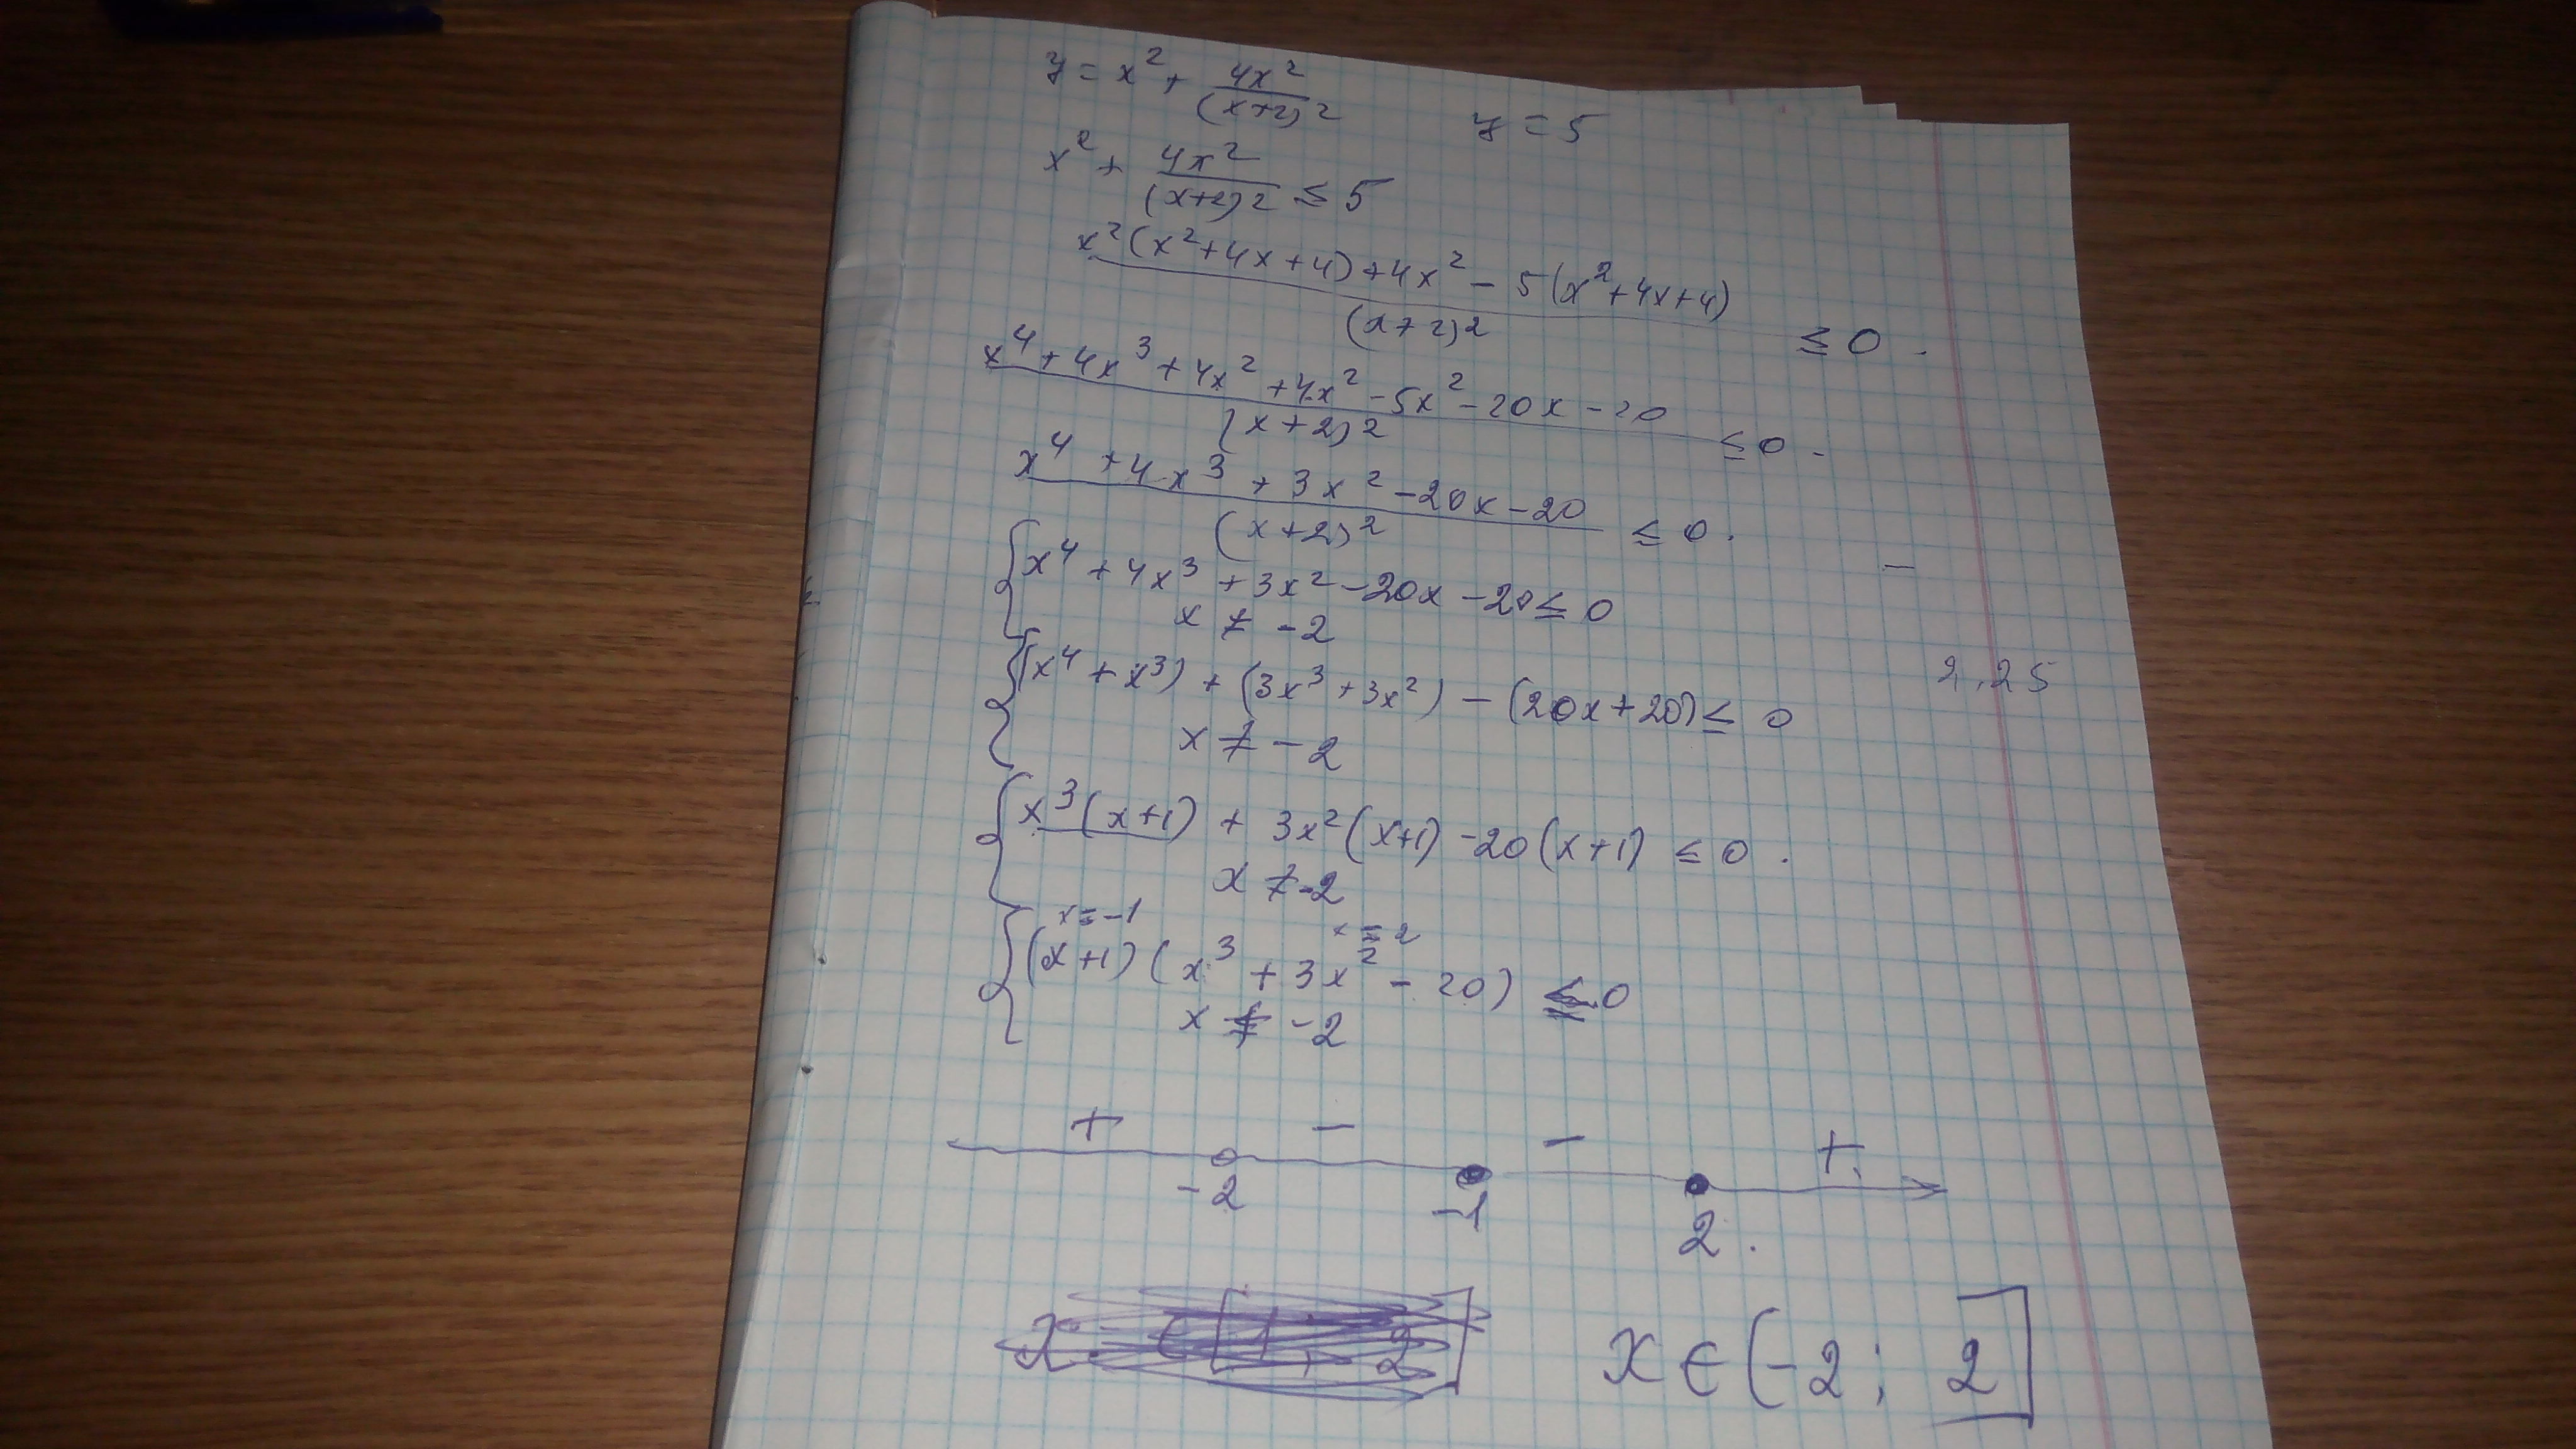 y = x² + 4x²/(x+2)²   y = 5
x² + 4x²/(x+2)² ≤ 5
(x²(x²+4x+4)+4x² - 5(x²+4x+4))/(x+2)² ≤ 0.
(x⁴+4x³+4x²+4x²-5x²-20x-20)/(x+2)² ≤ 0.
(x⁴+4x³+3x²-20x-20)/(x+2)² ≤ 0.
{ x⁴+4x³+3x²-20x-20 ≤ 0
x ≠ -2
2,25
{ (x⁴+x³)+(3x³+3x²)-(20x+20) ≤ 0
x ≠ -2
{ x³(x+1) + 3x²(x+1) -20(x+1) ≤ 0.
x ≠ -2
x=-1   x=2
{ (x+1)(x³+3x²-20) ≤ 0
x ≠ -2
+ - - +
-2 -1 2.
x ∈ (-2; 2]